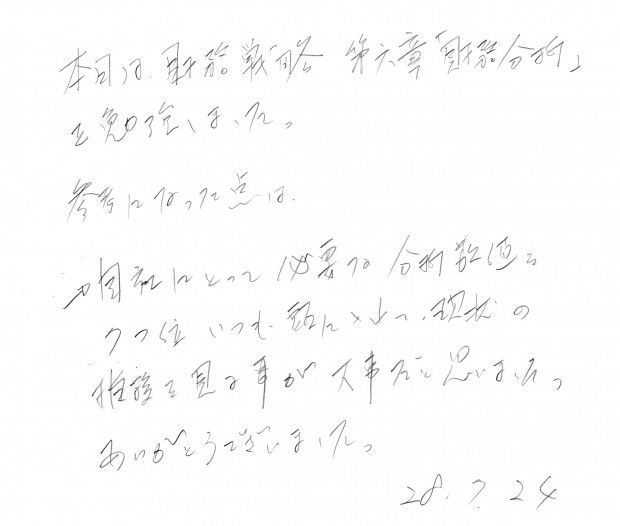 本日は、財務戦略 第六章「財務分析」
を勉強しました。
参考になった点は、
自社にとって必要な分析数値を
7つ位 いつも、頭に 、現状の
推移を見る事が大事だと思いました。
ありがとうございました。
28.7.24